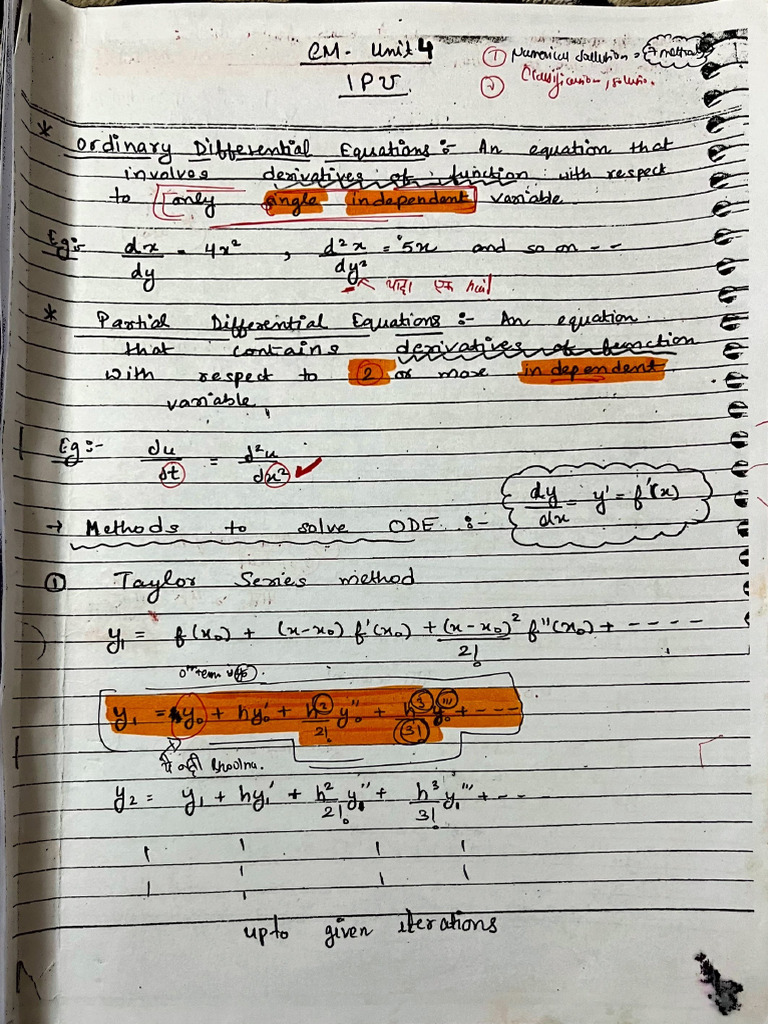 CM. Unit 4
IPU
① Numerical Solution = 7 methods
② Classification, solution.
* Ordinary Differential Equations :- An equation that
involves derivatives of function with respect
to only single independent variable
Eg:- dx/dy = 4x² , d²x/dy² = 5x and so on --
* Partial Differential Equations :- An equation
that contains derivatives of function
with respect to 2 or more independent
variable
Eg :- du/dt = d²u/dx² ✓
dy/dx = y' = f'(x)
→ Methods to solve ODE :-
① Taylor Series method
y₁ = f(x₀) + (x-x₀) f'(x₀) + (x-x₀)²/2! f''(x₀) + ----
y₁ = y₀ + hy₀' + h²/2! y₀'' + h³/3! y₀''' + ---
ये नही bhoolna.
y₂ = y₁ + hy₁' + h²/2! y₁'' + h³/3! y₁''' + --
upto given iterations